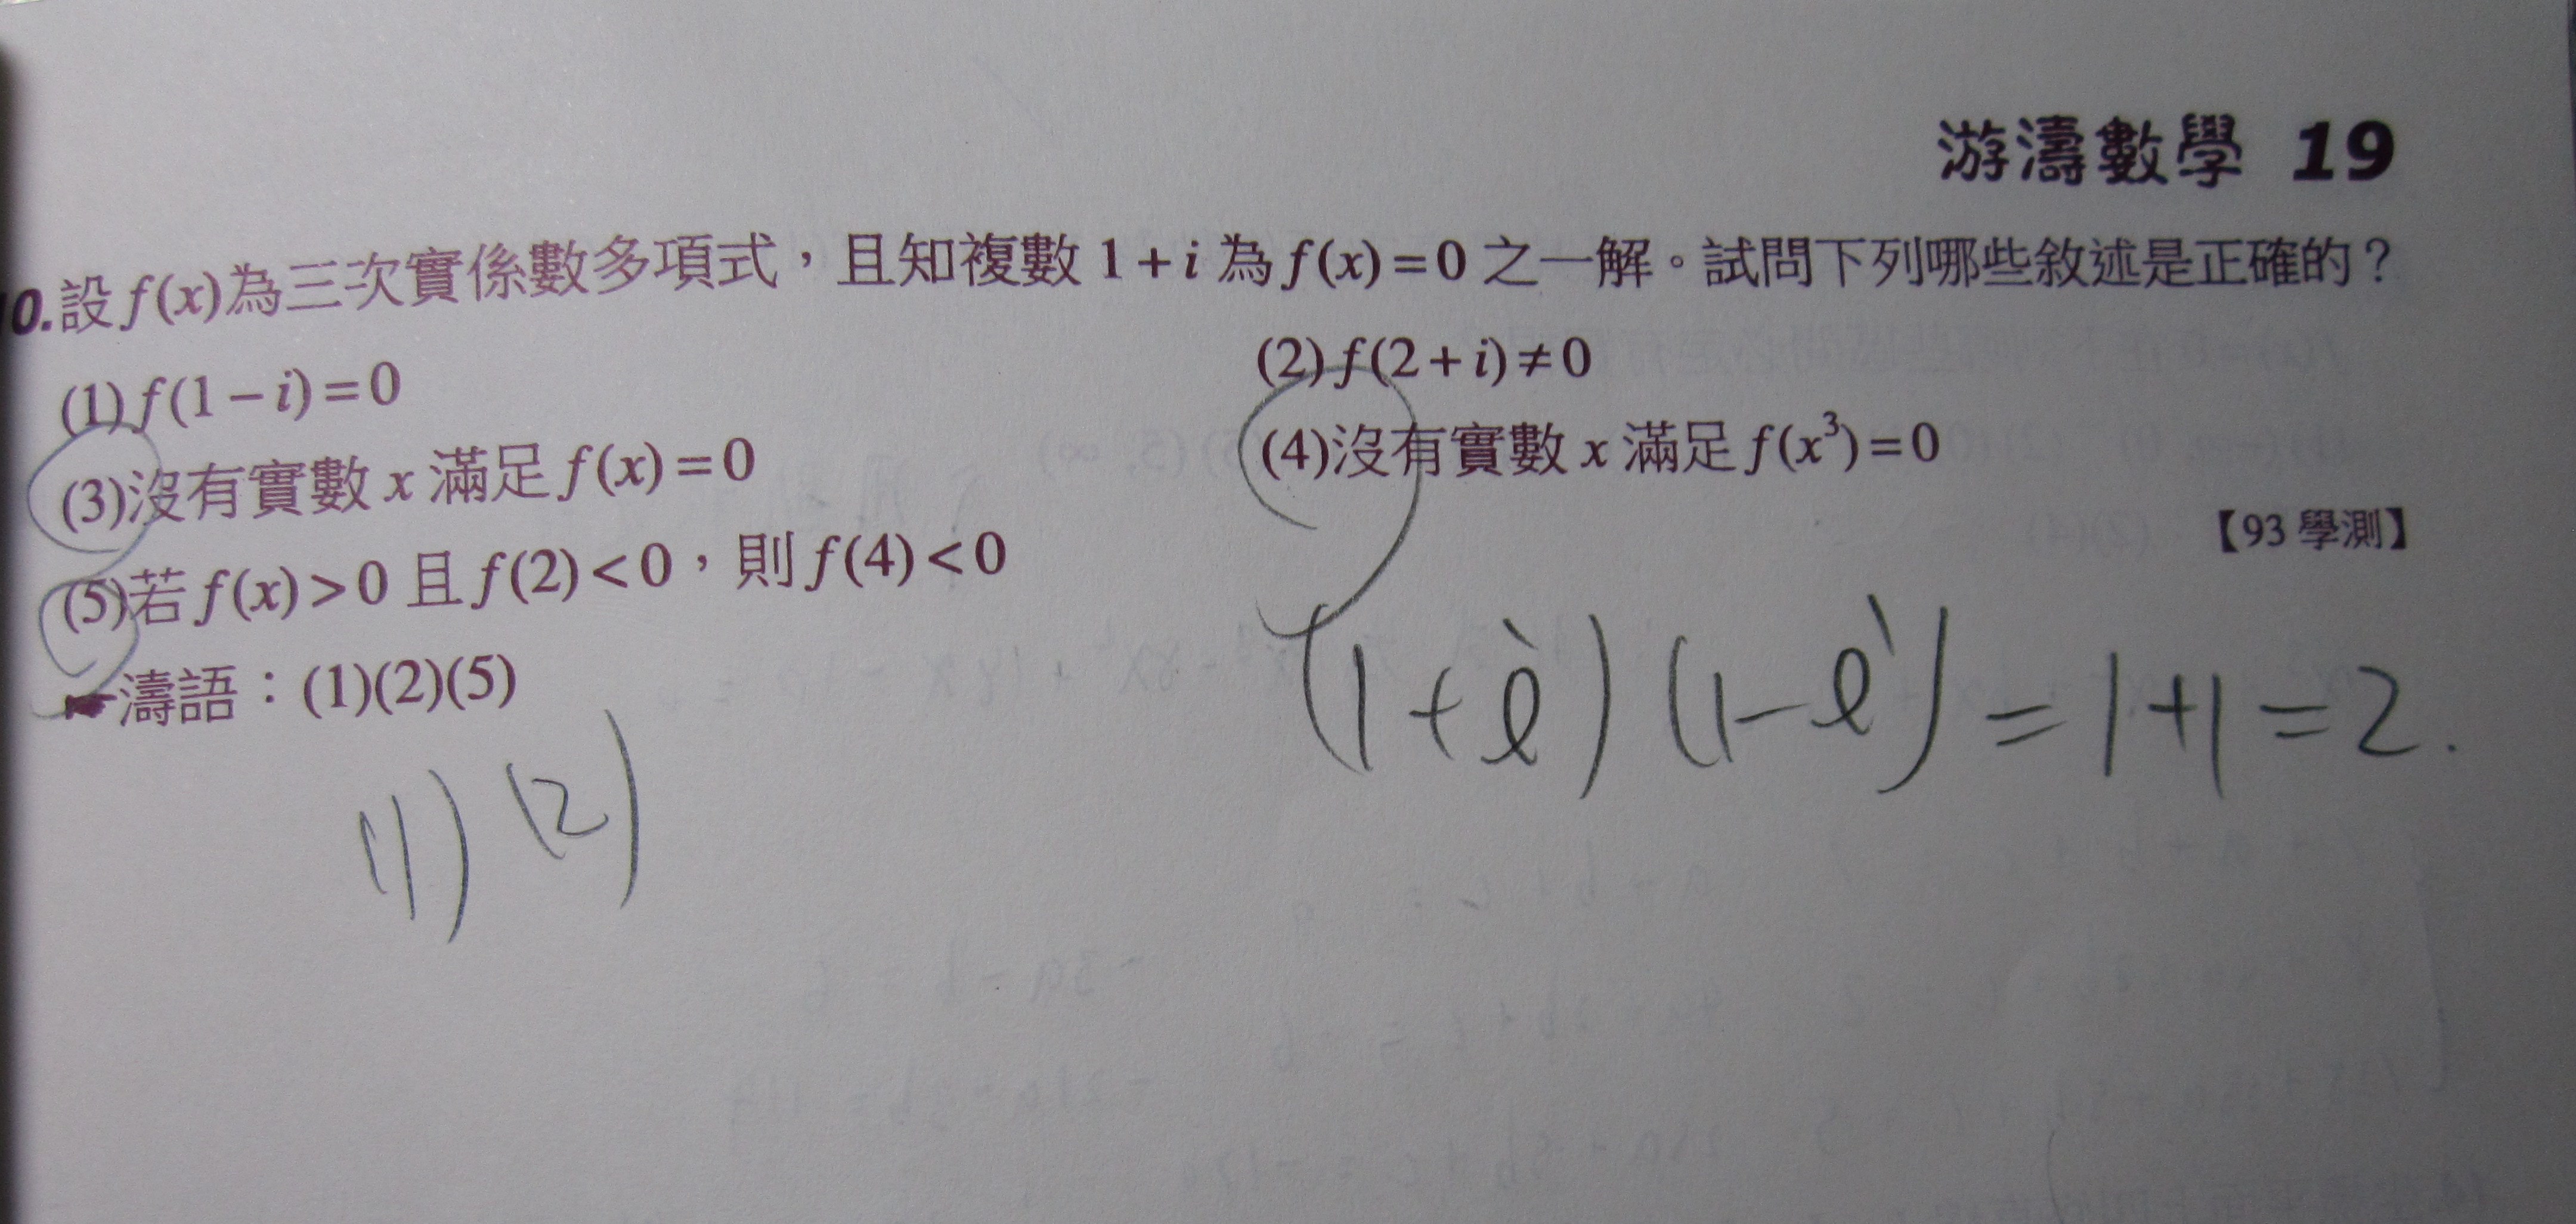 游濤數學 19
10.設f(x)為三次實係數多項式，且知複數 1+i 為 f(x)=0 之一解。試問下列哪些敘述是正確的？
(1) f(1−i)=0 (2) f(2+i)≠0
(3)沒有實數 x 滿足 f(x)=0 (4)沒有實數 x 滿足 f(x³)=0
(5)若 f(x)>0 且 f(2)<0，則 f(4)<0 【93 學測】
☛濤語：(1)(2)(5)
(1+i)(1−i)=1+1=2.
(1) (2)